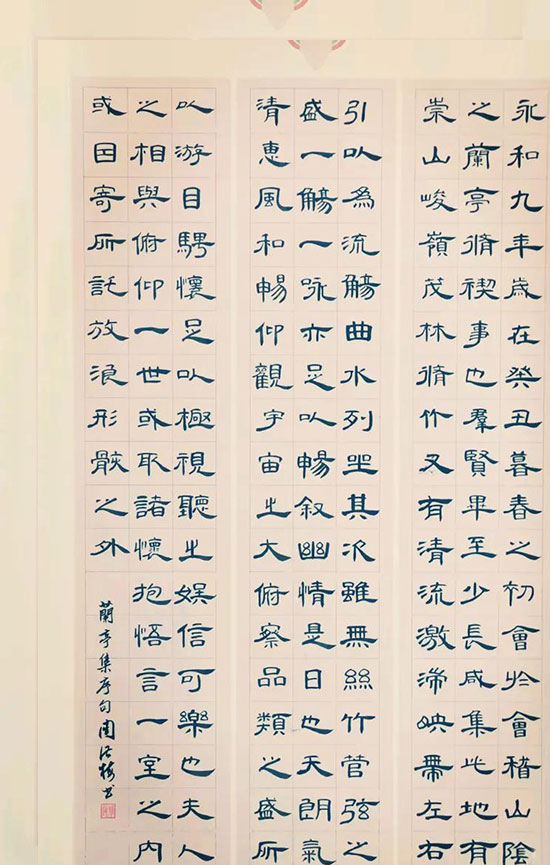 永和九年歲在癸丑暮春之初會於會稽山陰
之蘭亭脩禊事也羣賢畢至少長咸集此地有
崇山峻嶺茂林脩竹又有清流激湍映帶左右
引以為流觴曲水列坐其次雖無絲竹管弦之
盛一觴一咏亦足以暢叙幽情是日也天朗氣
清惠風和暢仰觀宇宙之大俯察品類之盛所
以游目騁懷足以極視聽之娛信可樂也夫人
之相與俯仰一世或取諸懷抱悟言一室之內
或因寄所託放浪形骸之外
蘭亭集序句